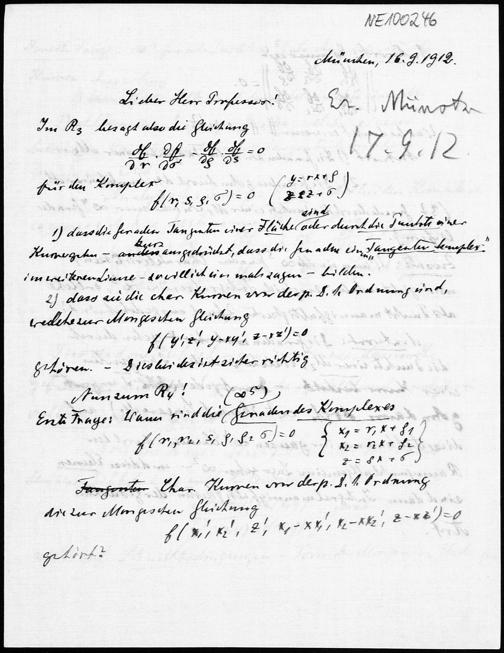 NE100246
München, 16.9.1912.
Lieber Herr Professor!
Er. Münster
17.9.12
Im R₃ besagt also die Gleichung
∂f/∂r · ∂f/∂σ − ∂f/∂ρ · ∂f/∂s = 0
für den Komplex f(r, s, ρ, σ) = 0 (y = rx + ρ
z = sx + σ)
sind
1) dass die Geraden Tangenten einer Fläche (oder durch die Punkte einer
Kurve gehen – anders ausgedrückt, dass die Geraden ein „Tangentenkomplex"
kurz
im weiteren Sinne – so will ich mal sagen – bilden.
2) dass sie die char. Kurven von der p. D. 1. Ordnung sind,
welche zur Mongeschen Gleichung
f(y', z', y−xy', z−xz') = 0
gehören. – Dies beides ist sicher richtig
Nun zum R₄! (∞⁵)
Erste Frage: Wann sind die Geraden des Komplexes
f(r₁, r₂, s, ρ₁, ρ₂, σ) = 0 { x₁ = r₁x + ρ₁
x₂ = r₂x + ρ₂
z = sx + σ }
Tangenten Char. Kurven von der p. D. 1. Ordnung
die zur Mongeschen Gleichung
f(x₁', x₂', z', x₁−xx₁', x₂−xx₂', z−xz') = 0
gehört?